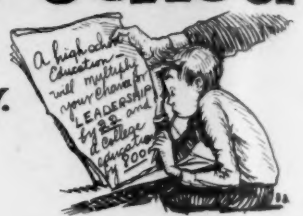 A high school
Education—
will multiply
your chance for
LEADERSHIP
by 22 and
a College
education
by 200